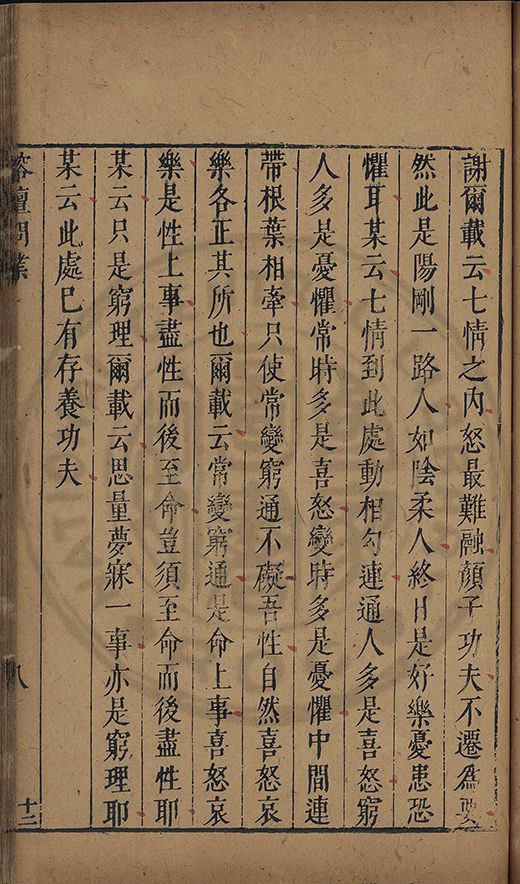 謝爾載云七情之內怒最難融顏子功夫不遷為要
然此是陽剛一路人如陰柔人終日是好樂憂患恐
懼耳某云七情到此處動相勾連通人多是喜怒窮
人多是憂懼常時多是喜怒變時多是憂懼中間連
帶根葉相牽只使常變窮通不礙吾性自然喜怒哀
樂各正其所也爾載云常變窮通是命上事喜怒哀
樂是性上事盡性而後至命豈須至命而後盡性耶
某云只是窮理爾載云思量夢寐一事亦是窮理耶
某云此處已有存養功夫
榕壇問業
八
十二